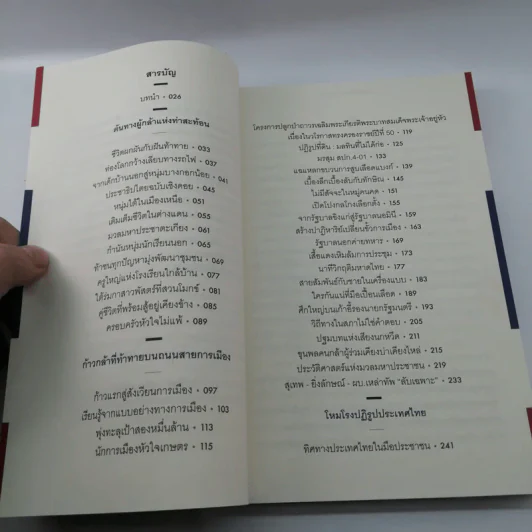 สารบัญ
บทนำ • 026
ต้นทางผู้กล้าแห่งท่าสะท้อน
ชีวิตแลกฝันกับฝันท้าทาย • 033
ท่องโลกกว้างเลียบทางรถไฟ • 037
จากเด็กบ้านนอกสู่หนุ่มบางกอกน้อย • 041
ประชาธิปไตยฉบับเชิงคอย • 045
หนุ่มใต้ในเมืองเหนือ • 051
เติมเต็มชีวิตในต่างแดน • 055
มวลมหาประชาตะเกียง • 061
กำนันหนุ่มนักเรียนนอก • 065
ท้าชนทุกปัญหามุ่งพัฒนาชุมชน • 069
ครูใหญ่แห่งโรงเรียนใกล้บ้าน • 077
ใต้ร่มกาสาวพัสตร์ที่สวนโมกข์ • 081
คู่ชีวิตที่พร้อมสู้อยู่เคียงข้าง • 085
ครอบครัวหัวใจไม่แพ้ • 089
ก้าวกล้าที่ท้าทายบนถนนสายการเมือง
ก้าวแรกสู่สังเวียนการเมือง • 097
เรียนรู้จากแบบอย่างทางการเมือง • 103
พุ่งทะลุเป้าสองหมื่นล้าน • 113
นักการเมืองหัวใจเกษตร • 115
โครงการปลูกป่าถาวรเฉลิมพระเกียรติพระบาทสมเด็จพระเจ้าอยู่หัว
เนื่องในวโรกาสทรงครองราชย์ปีที่ 50 • 119
ปฏิรูปที่ดิน : มลทินที่ไม่ได้ก่อ • 125
มรสุม สปก.4-01 • 133
แฉแหลกขบวนการสูบเลือดแบงก์ • 139
เบื้องลึกเบื้องลับกับทักษิณ • 145
ไม่มีสัจจะในหมู่คนคด • 151
เปิดโปงกลโกงเลือกตั้ง • 155
จากรัฐบาลขิงแก่สู่รัฐบาลนอมินี • 159
สร้างปาฏิหาริย์เปลี่ยนขั้วการเมือง • 163
รัฐบาลนอกค่ายทหาร • 169
เสื้อแดงเหิมล้มการประชุม • 173
นาทีวิกฤติมหาดไทย • 177
สายสัมพันธ์กับชายในเครื่องแบบ • 183
ใครกันแน่ที่มือเปื้อนเลือด • 189
ศึกใหญ่บนเก้าอี้รองนายกรัฐมนตรี • 193
วิถีทางในสภาไม่ใช่คำตอบ • 205
ปฐมบทแห่งเสียงนกหวีด • 209
ขุนพลคนกล้าผู้ร่วมเคียงบ่าเคียงไหล่ • 215
ประวัติศาสตร์แห่งมวลมหาประชาชน • 219
สุเทพ - ยิ่งลักษณ์ - ผบ.เหล่าทัพ "ลับเฉพาะ" • 233
โหมโรงปฏิรูปประเทศไทย
ทิศทางประเทศไทยในมือประชาชน • 241